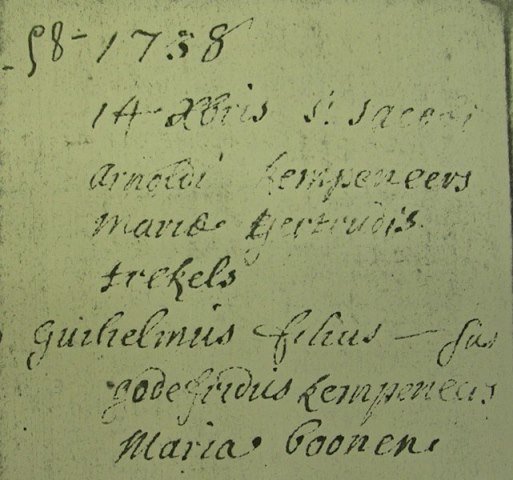 - 58 - 1738
14 Xbris St Jacobi
Arnoldi Kempeneers
Mariæ Gertrudis
trekels
Guilhelmus filius — sus
godefridus Kempeneers
Maria boonen